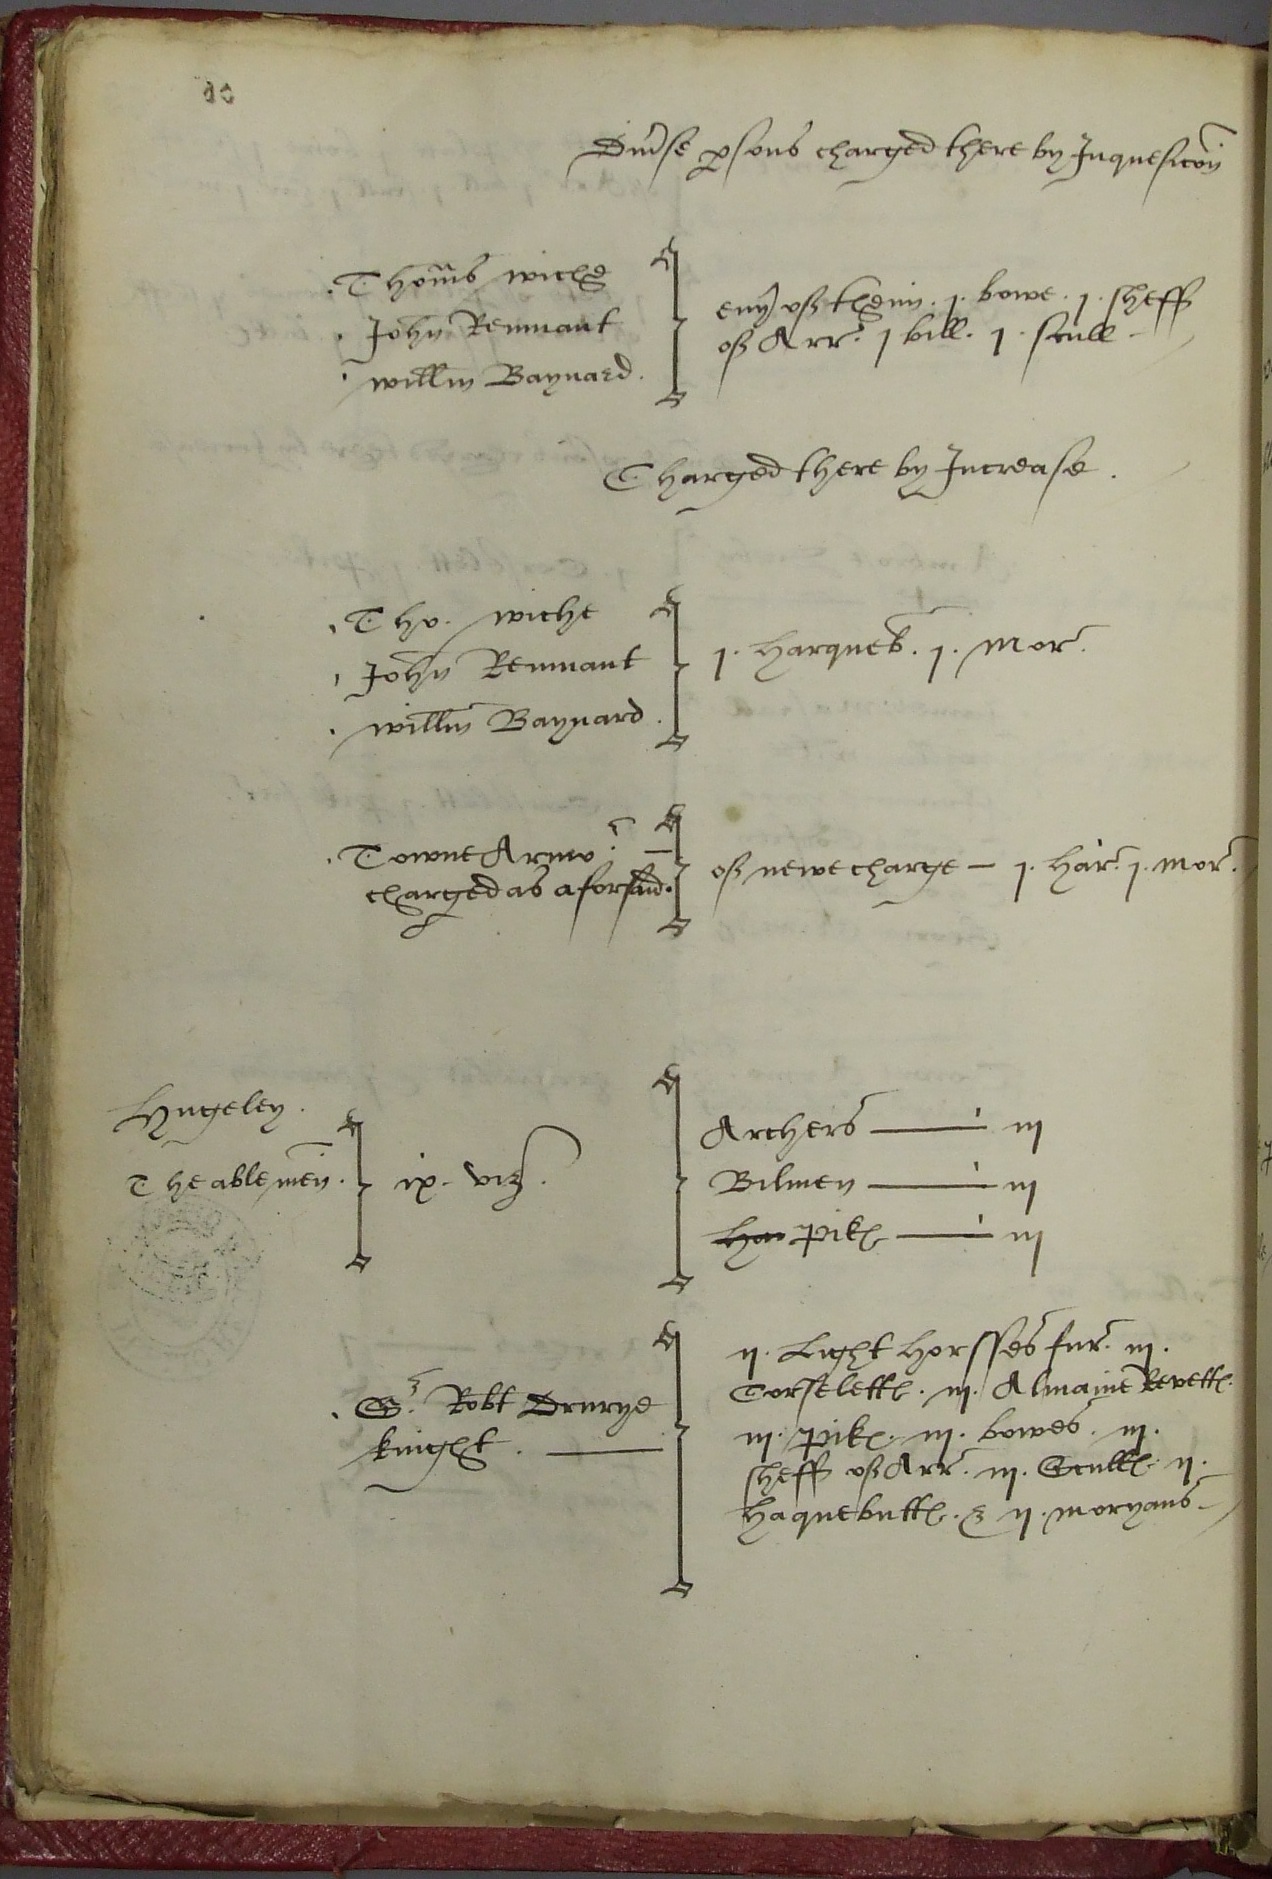 Div'se p'sons charged there by Inquesic'on
Thom's wiche
John Remnant
will'm Baynard.
eu'y of them. j. bowe. j. sheff
of Arr. j bill. j. scull
Charged there by Increase.
Tho. wiche
John Remnant
will'm Baynard.
j. harqueb. j. Mor.
Towne Armo.r —
chargedas aforsaid.
of newe charge — j. har. j. Mor.
Hyngeley.
The able men.
ix. viz.
Archers — iij
Bilmen — iij
har pik — iij
Sr. Robt Drurye
knight. —
ij. Light horsses fur. iij.
Corslett. iij. Almaine Revett.
iij. pik. iij. bowes. iij.
sheff of Arr. iij. Scull. ij.
haquebutt. & ij. moryans